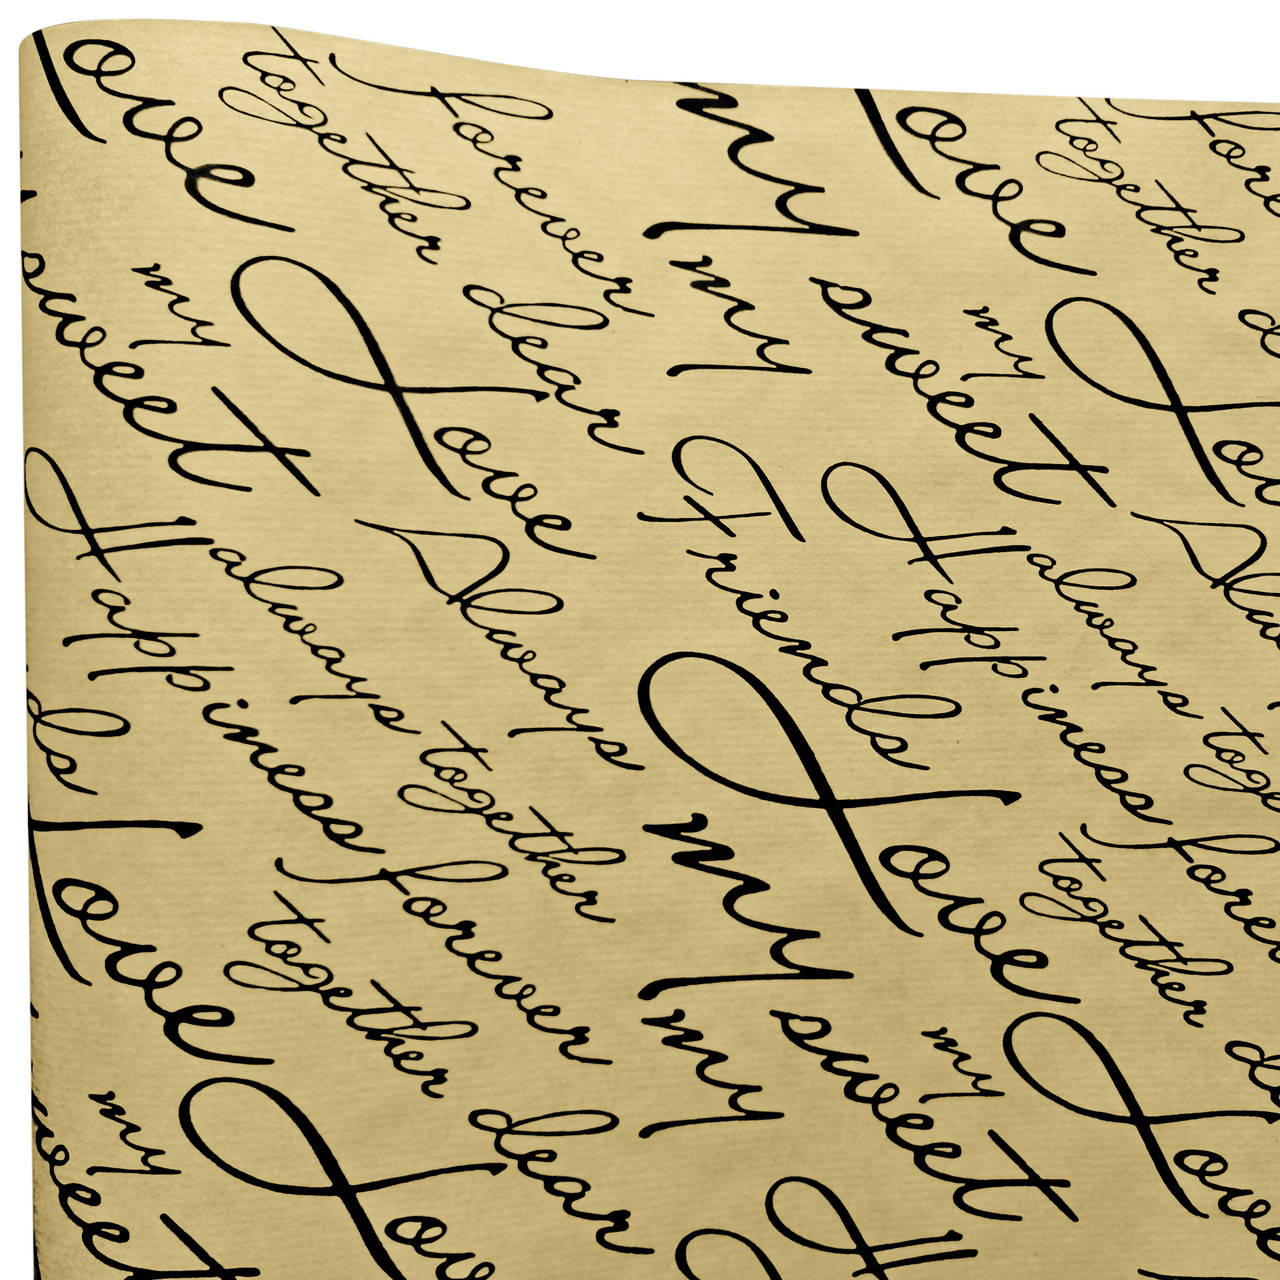 Love
together
forever
my
Love
together
forever
sweet
my
Love
dear
my
sweet
my
Love
Happiness
always
Always
together
Friends
Happiness
always
together
Love
forever
together
my
Love
forever
together
my
Love
dear
my
sweet
my
Love
sweet